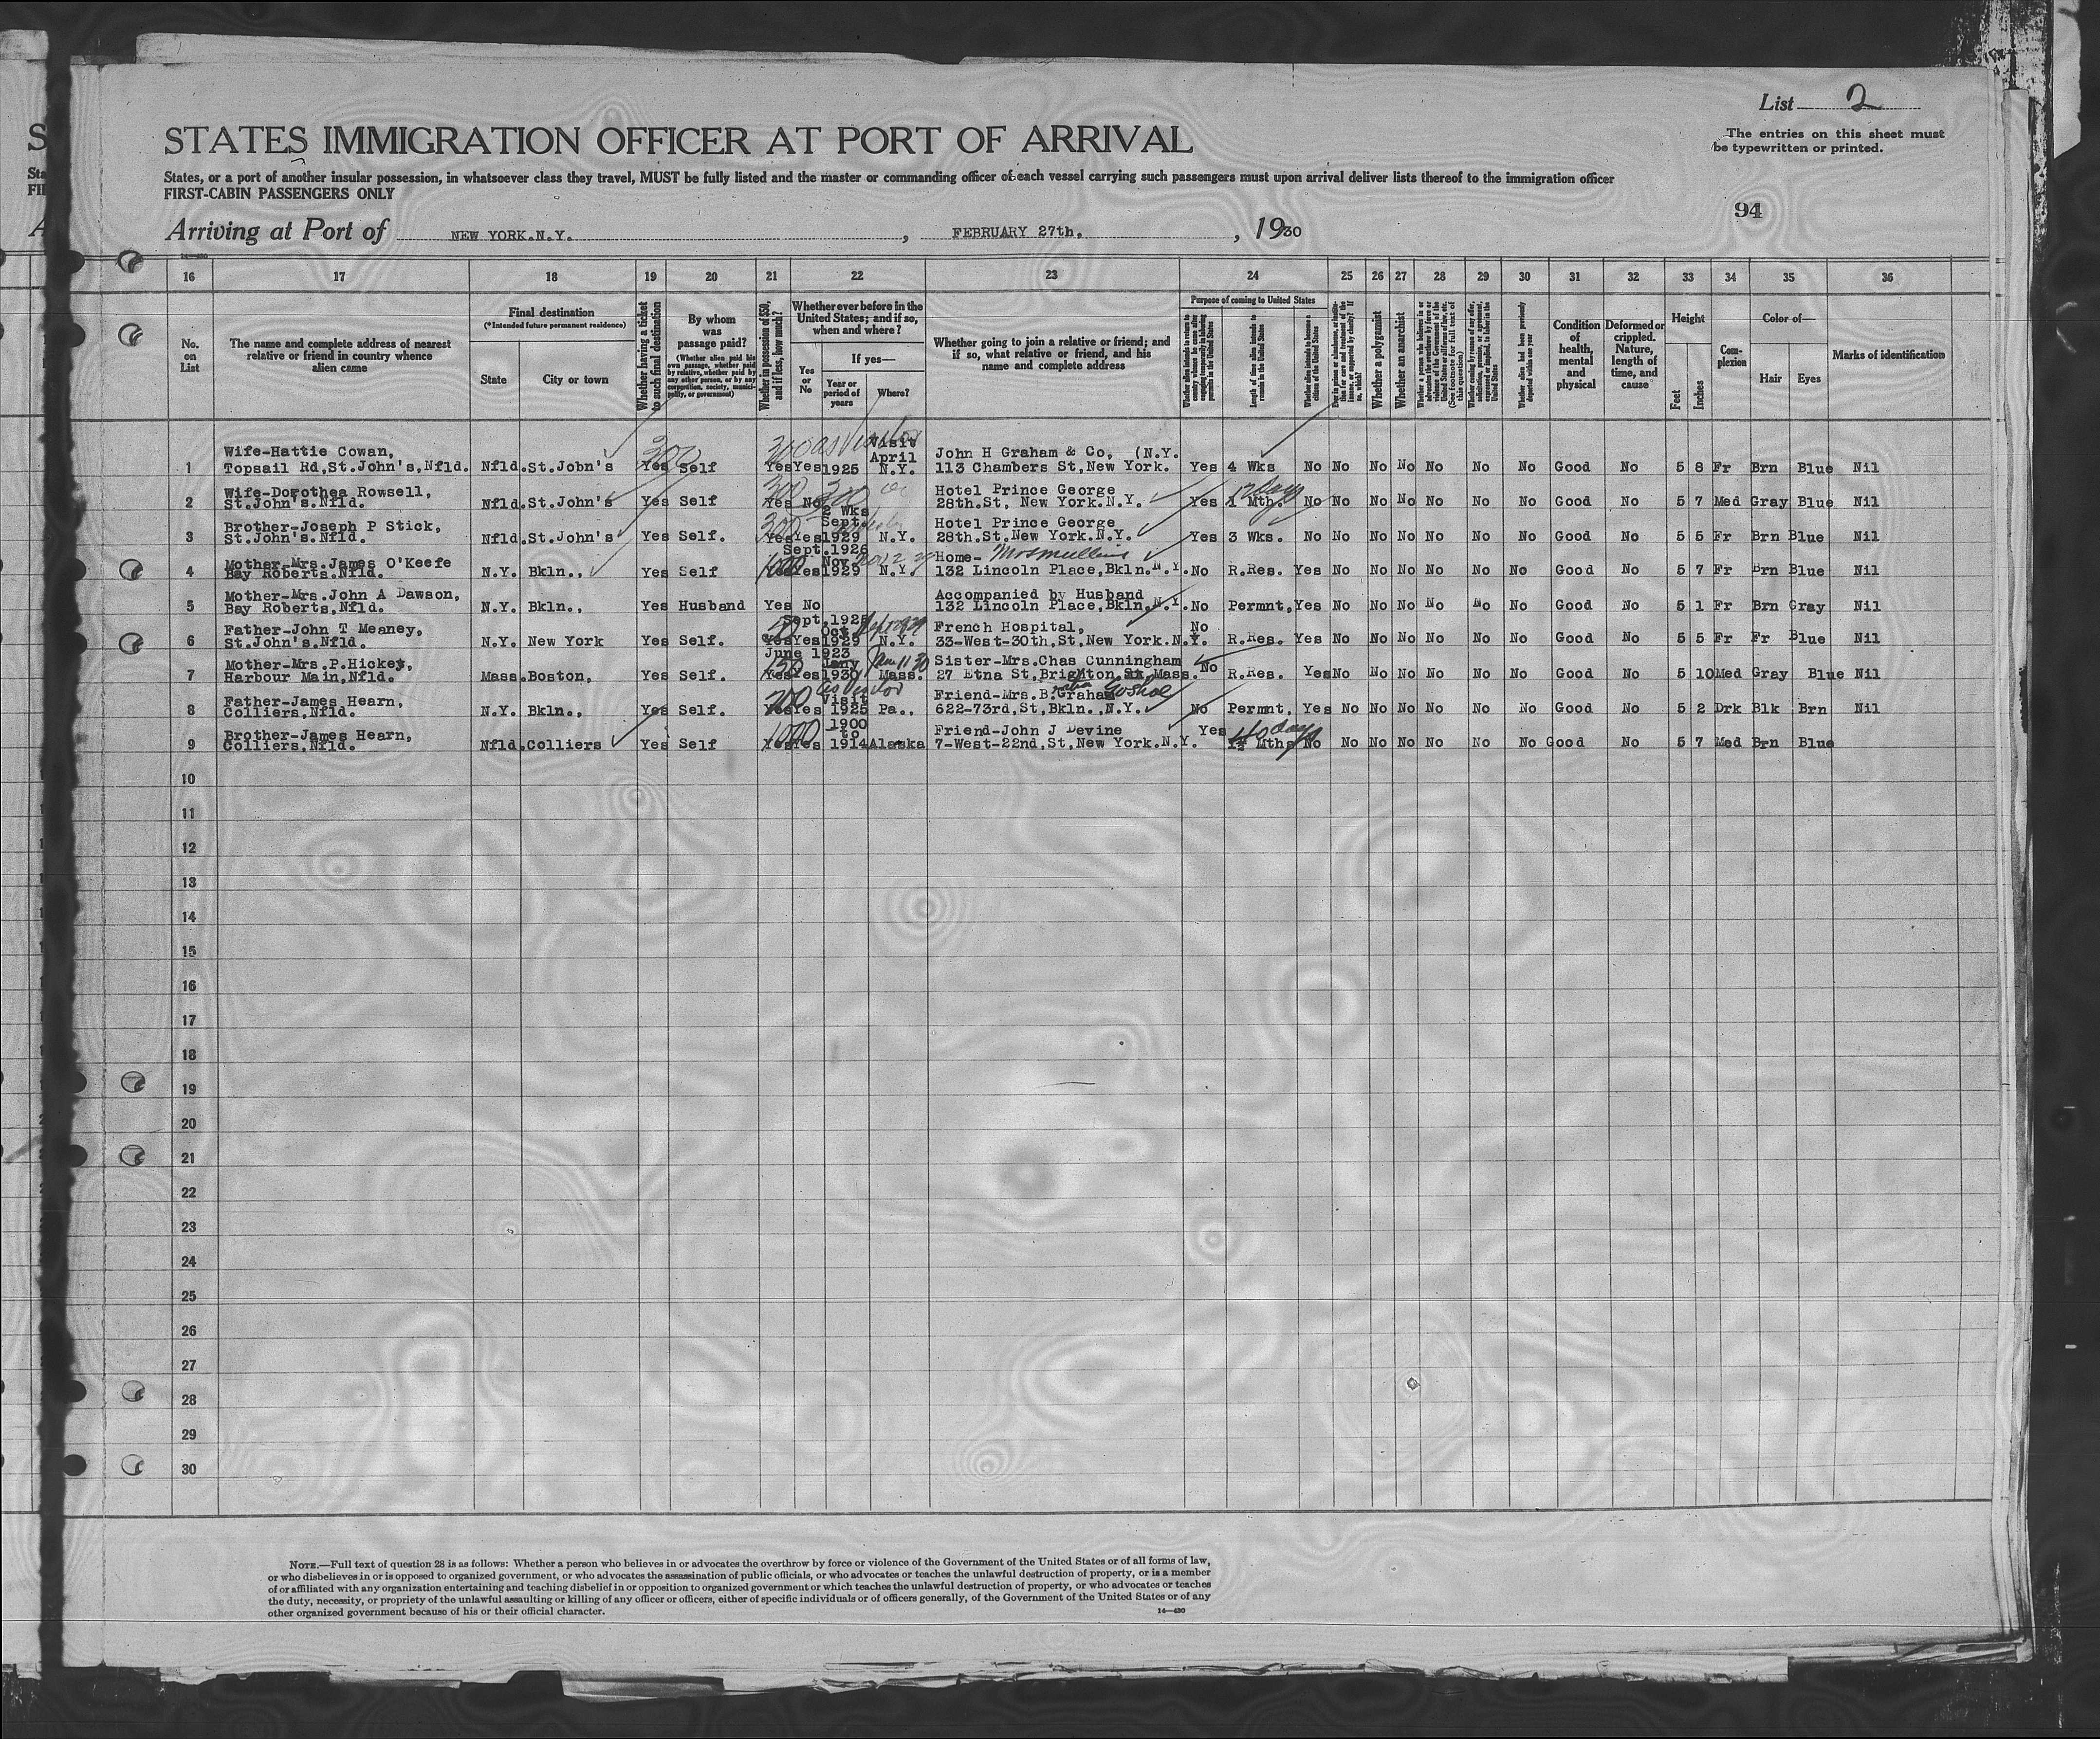 List 2
STATES IMMIGRATION OFFICER AT PORT OF ARRIVAL
The entries on this sheet must
be typewritten or printed.
States, or a port of another insular possession, in whatsoever class they travel, MUST be fully listed and the master or commanding officer of each vessel carrying such passengers must upon arrival deliver lists thereof to the immigration officer
FIRST-CABIN PASSENGERS ONLY
94
Arriving at Port of NEW YORK.N.Y. , FEBRUARY 27th. , 1930
16 17 18 19 20 21 22 23 24 25 26 27 28 29 30 31 32 33 34 35 36
No. on List
The name and complete address of nearest relative or friend in country whence alien came
Final destination
(*Intended future permanent residence)
State City or town
Whether having a ticket to such final destination
By whom was passage paid?
(Whether alien paid his own passage, whether paid by relative, whether paid by any other person, or by any corporation, society, municipality, or government)
Whether in possession of $50, and if less, how much?
Whether ever before in the United States; and if so, when and where?
Yes or No
If yes—
Year or period of years
Where?
Whether going to join a relative or friend; and if so, what relative or friend, and his name and complete address
Purpose of coming to United States
Length of time alien intends to remain in the United States
Whether a polygamist
Whether an anarchist
Condition of health, mental and physical
Deformed or crippled. Nature, length of time, and cause
Height
Feet Inches
Complexion
Color of—
Hair Eyes
Marks of identification
1 Wife-Hattie Cowan, Topsail Rd,St.John's,Nfld. Nfld.St.John's Yes Self Yes Yes 1925 Visit April N.Y. John H Graham & Co, (N.Y. 113 Chambers St,New York. Yes 4 Wks No No No No No No No Good No 5 8 Fr Brn Blue Nil
2 Wife-Dorothea Rowsell, St.John's.Nfld. Nfld.St.John's Yes Self Yes No Hotel Prince George 28th.St, New York.N.Y. Yes 1 Mth. No No No No No No No Good No 5 7 Med Gray Blue Nil
3 Brother-Joseph P Stick, St.John's.Nfld. Nfld.St.John's Yes Self. Yes Yes 2 Wks Sept. 1929 N.Y. Hotel Prince George 28th.St.New York.N.Y. Yes 3 Wks. No No No No No No No Good No 5 5 Fr Brn Blue Nil
4 Mother-Mrs.James O'Keefe Bay Roberts.Nfld. N.Y. Bkln., Yes Self Yes Yes Sept.1926 Nov 1929 N.Y. Home- 132 Lincoln Place,Bkln.N.Y. No R.Res. Yes No No No No No No Good No 5 7 Fr Brn Blue Nil
5 Mother-Mrs.John A Dawson, Bay Roberts,Nfld. N.Y. Bkln., Yes Husband Yes No Accompanied by Husband 132 Lincoln Place,Bkln.N.Y. No Permnt. Yes No No No No No No Good No 5 1 Fr Brn Gray Nil
6 Father-John T Meaney, St.John's.Nfld. N.Y. New York Yes Self. Yes Yes Sept.1925 Oct. 1929 N.Y. French Hospital, 33-West-30th,St,New York.N.Y. No R.Res. Yes No No No No No No Good No 5 5 Fr Fr Blue Nil
7 Mother-Mrs.P.Hickey, Harbour Main,Nfld. Mass.Boston, Yes Self. Yes Yes June 1923 Jany 1930 Mass. Sister-Mrs.Chas Cunningham 27 Etna St,Brighton Mass. No R.Res. Yes No No No No No No Good No 5 10 Med Gray Blue Nil
8 Father-James Hearn, Colliers,Nfld. N.Y. Bkln., Yes Self. 200 Yes Yes As Visitor Visit 1925 Pa.. Friend-Mrs.B.Graham 622-73rd,St,Bkln.,N.Y. No Permnt, Yes No No No No No No Good No 5 2 Drk Blk Brn Nil
9 Brother-James Hearn, Colliers,Nfld. Nfld.Colliers Yes Self Yes Yes 1900 to 1914 Alaska Friend-John J Devine 7-West-22nd,St,New York.N.Y. Yes 40 days Mths No No No No No No No Good No 5 7 Med Brn Blue
10
11
12
13
14
15
16
17
18
19
20
21
22
23
24
25
26
27
28
29
30
NOTE.—Full text of question 28 is as follows: Whether a person who believes in or advocates the overthrow by force or violence of the Government of the United States or of all forms of law,
or who disbelieves in or is opposed to organized government, or who advocates the assassination of public officials, or who advocates or teaches the unlawful destruction of property, or is a member
of or affiliated with any organization entertaining and teaching disbelief in or opposition to organized government or which teaches the unlawful destruction of property, or who advocates or teaches
the duty, necessity, or propriety of the unlawful assaulting or killing of any officer or officers, either of specific individuals or of officers generally, of the Government of the United States or of any
other organized government because of his or their official character.
14—430